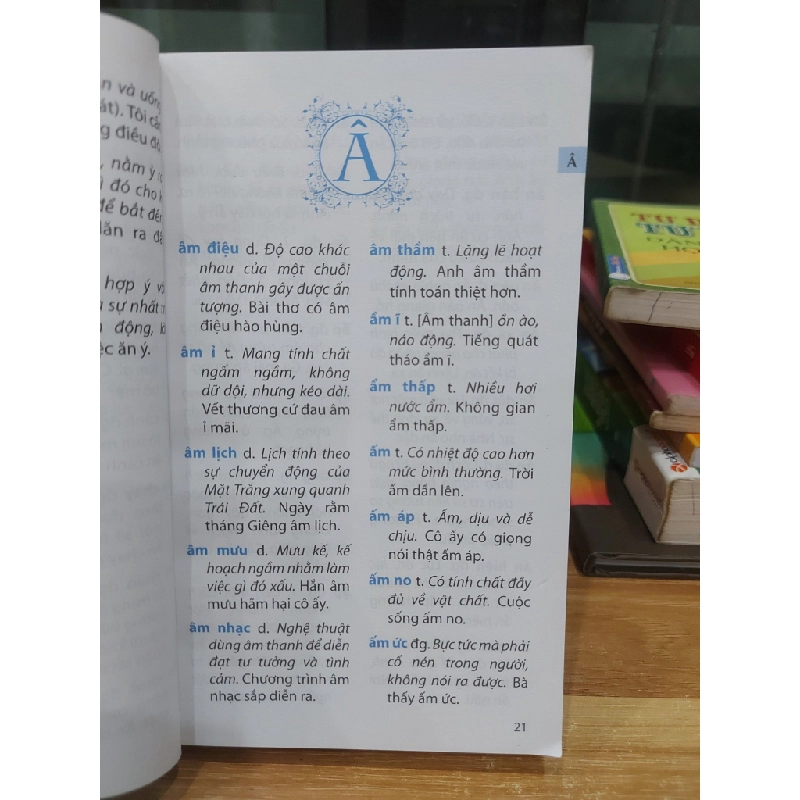 n và uống
át). Tôi cầ
g điều độ
, nằm ý
ì đó cho
để bắt đề
lăn ra đậ
hợp ý v
sự nhất
động,
ệc ăn ý.
Â
Â
âm điệu d. Độ cao khác
nhau của một chuỗi
âm thanh gây được ấn
tượng. Bài thơ có âm
điệu hào hùng.
âm ỉ t. Mang tính chất
ngấm ngầm, không
dữ dội, nhưng kéo dài.
Vết thương cứ đau âm
ỉ mãi.
âm lịch d. Lịch tính theo
sự chuyển động của
Mặt Trăng xung quanh
Trái Đất. Ngày rằm
tháng Giêng âm lịch.
âm mưu d. Mưu kế, kế
hoạch ngầm nhằm làm
việc gì đó xấu. Hắn âm
mưu hãm hại cô ấy.
âm nhạc d. Nghệ thuật
dùng âm thanh để diễn
đạt tư tưởng và tình
cảm. Chương trình âm
nhạc sắp diễn ra.
âm thầm t. Lặng lẽ hoạt
động. Anh âm thầm
tính toán thiệt hơn.
ầm ĩ t. [Âm thanh] ồn ào,
náo động. Tiếng quát
tháo ầm ĩ.
ẩm thấp t. Nhiều hơi
nước ẩm. Không gian
ẩm thấp.
ấm t. Có nhiệt độ cao hơn
mức bình thường. Trời
ấm dần lên.
ấm áp t. Ấm, dịu và dễ
chịu. Cô ấy có giọng
nói thật ấm áp.
ấm no t. Có tính chất đầy
đủ về vật chất. Cuộc
sống ấm no.
ấm ức đg. Bực tức mà phải
cố nén trong người,
không nói ra được. Bà
thấy ấm ức.
21
TỪ Đ
TỪ
DÀN
HỌ